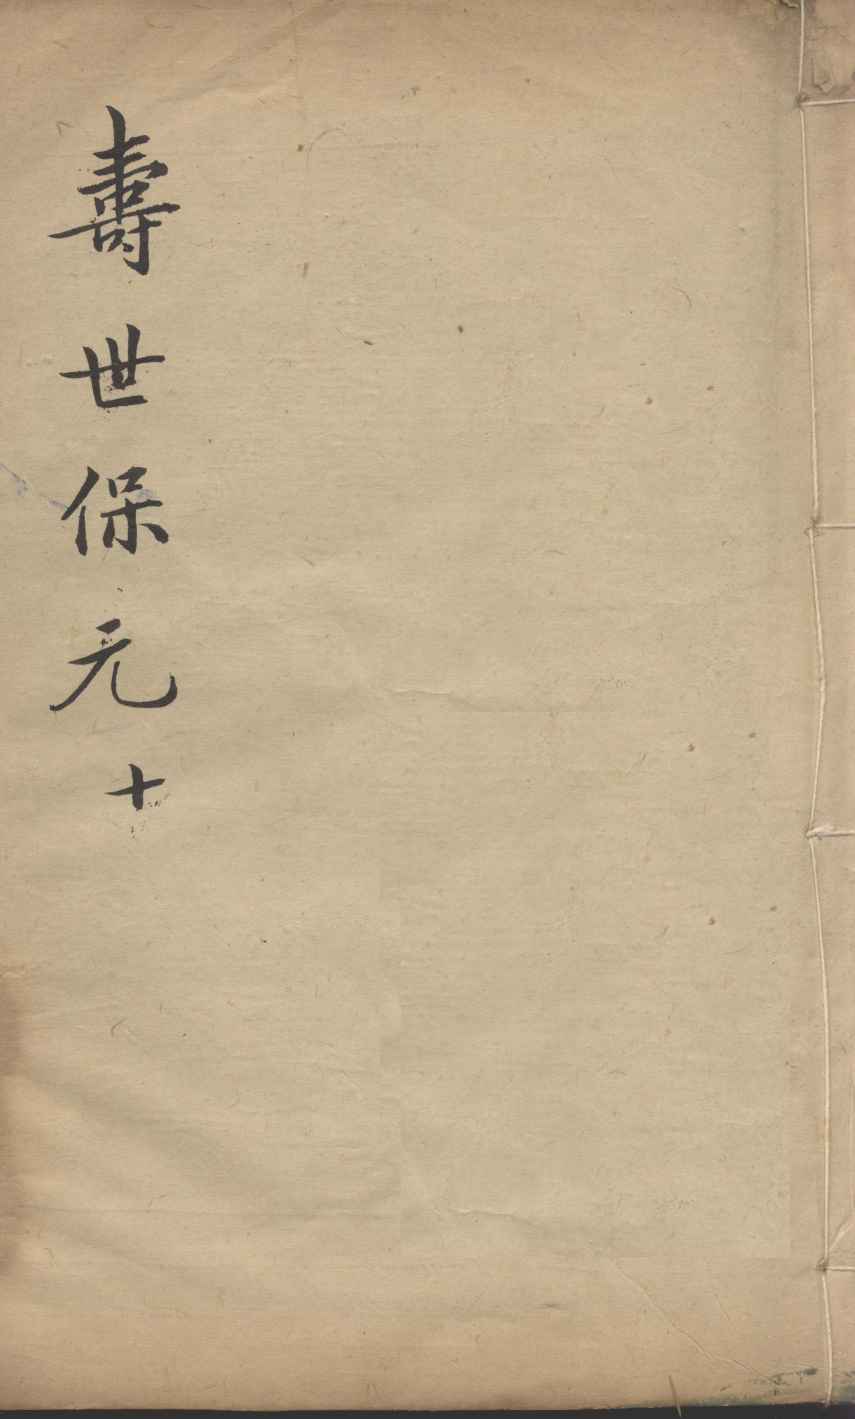 壽世保元十